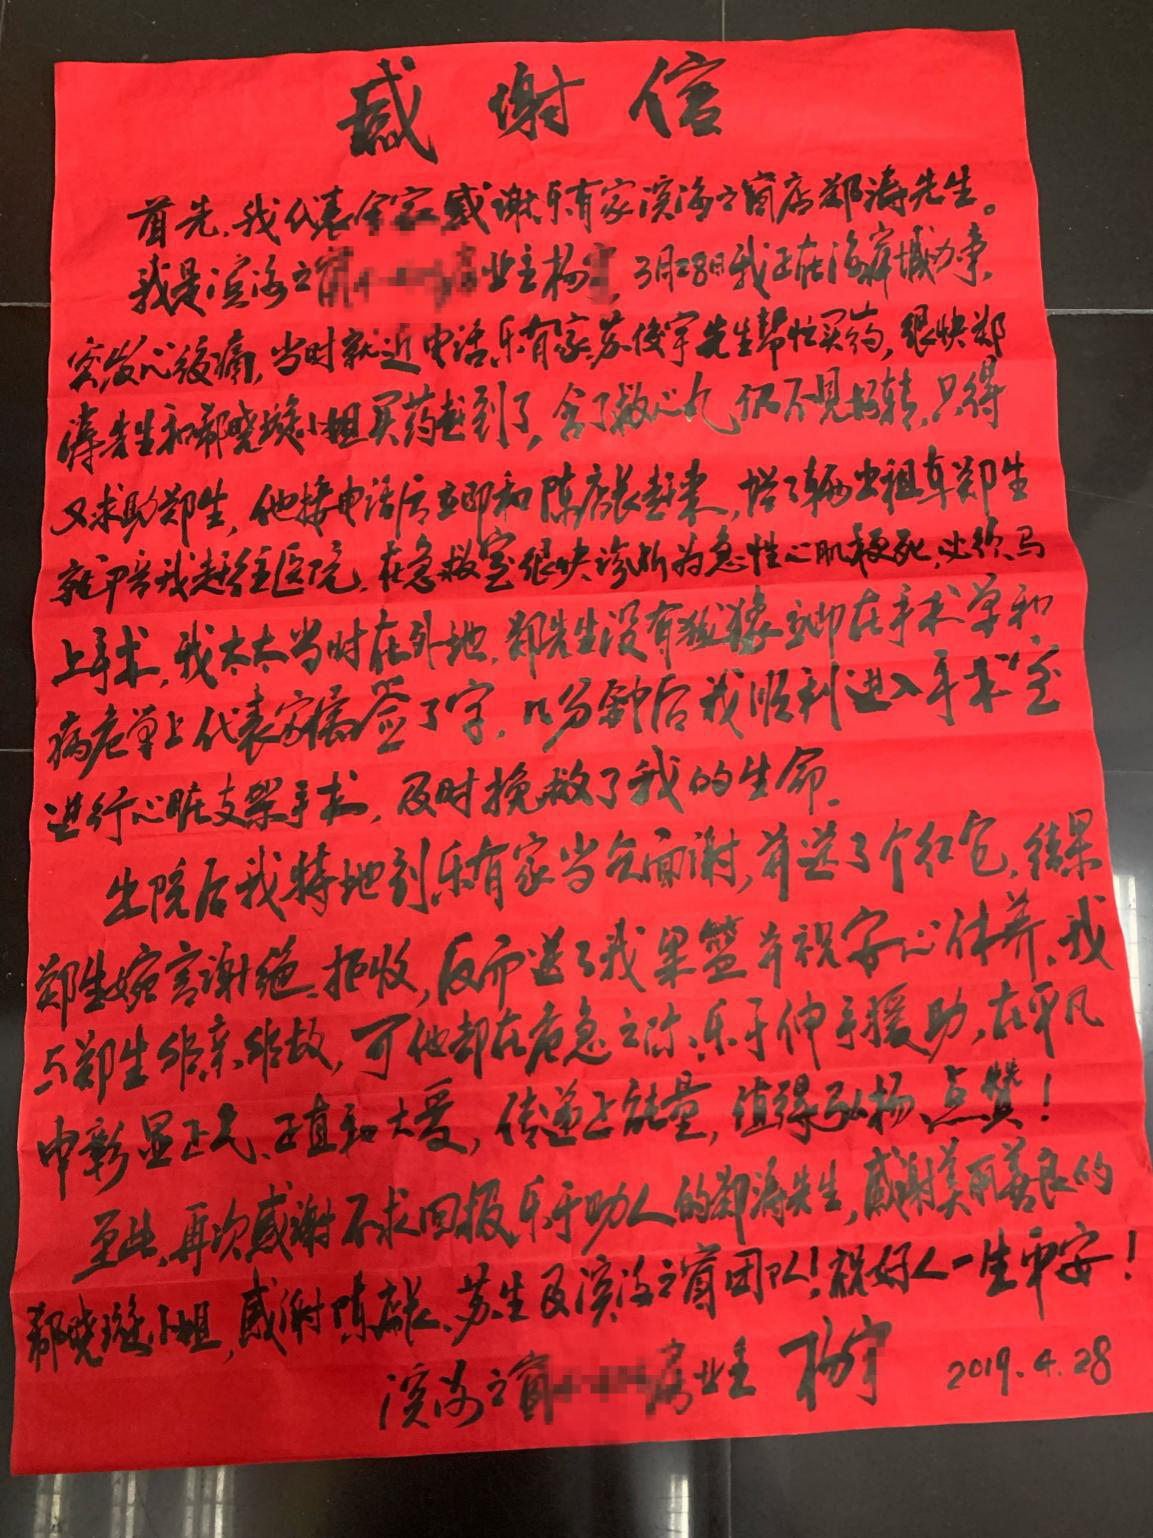 感谢信
首先,我代表全家感谢乐有家滨海之窗店郑涛先生。
我是滨海之窗 业主杨 ,3月28日我正在海岸城办事,
突发心绞痛,当时就近电话乐有家苏俊宇先生帮忙买药,很快郑
涛先生和郗晓璇小姐买药赶到了,含了救心丸仍不见好转,只得
又求助郑生,他接电话后立即和陈店长赶来,搭了辆出租车郑生
就陪我赶往医院,在急救室很快诊断为急性心肌梗死,必须马
上手术,我太太当时在外地,郑先生没有犹豫立即在手术单和
病危单上代表家属签了字,几分钟后我顺利进入手术室
进行心脏支架手术,及时挽救了我的生命。
出院后我特地到乐有家当众面谢,并送了个红包,结果
郑生婉言谢绝、拒收,反而送了我果篮并祝安心休养、我
与郑生非亲非故,可他却在危急之际、乐于伸手援助,在平凡
中彰显正气、正直和大爱,传递正能量,值得弘扬、点赞!
至此,再次感谢不求回报乐于助人的郑涛先生,感谢美丽善良的
郗晓璇小姐,感谢陈店长、苏生及滨海之窗团队!祝好人一生平安!
滨海之窗 业主 杨宇 2019.4.28